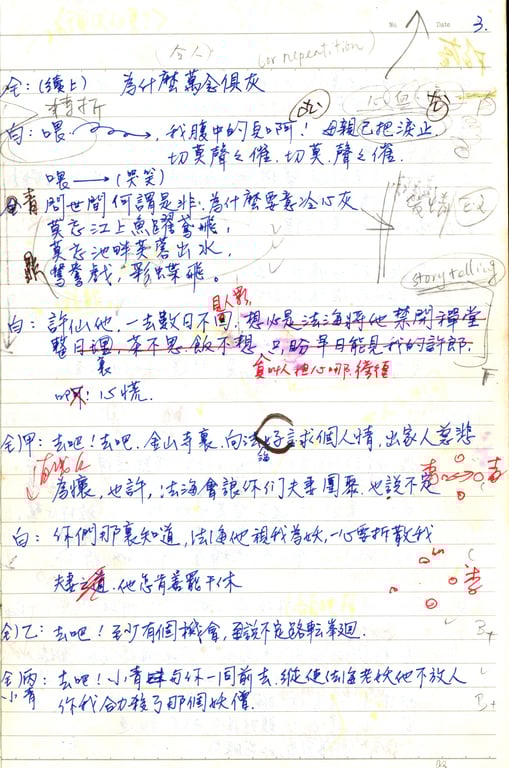 No Date 3.
(or repeatition)
全：(續上) 為什麼萬念俱灰
白：喂 ，我腹中的兒啊！母親已把淚止，
切莫聲聲催，切莫聲聲催.
喂 (哭笑)
青 問世間何謂是非，為什麼要意冷心灰
莫忘江上魚躍鳶飛，
莫忘池畔芙蓉出水，
鴛鴦戲，彩蝶飛。
story telling
白：許仙他，一去數日不回，想必是法海將他禁閉禪堂
整日裏，茶不思，飯不想，只盼早日能見我的許郎.
真叫人担心哪
心慌.
全)甲：去吧！去吧，金山寺裏，向法海好言求個人情，出家人慈悲
為懷，也許，法海會讓你们夫妻團聚，也說不定
白：你們那裏知道，法海他視我為妖，一心要拆散我
夫妻 他怎肯善罷干休
全)乙：去吧！至少有個機會，再說不定路転峯廻.
B+
全)丙：去吧！小青 与你一同前去，縱使法海老妖他不放人
小青 你我合力殺了那個妖僧.
B+